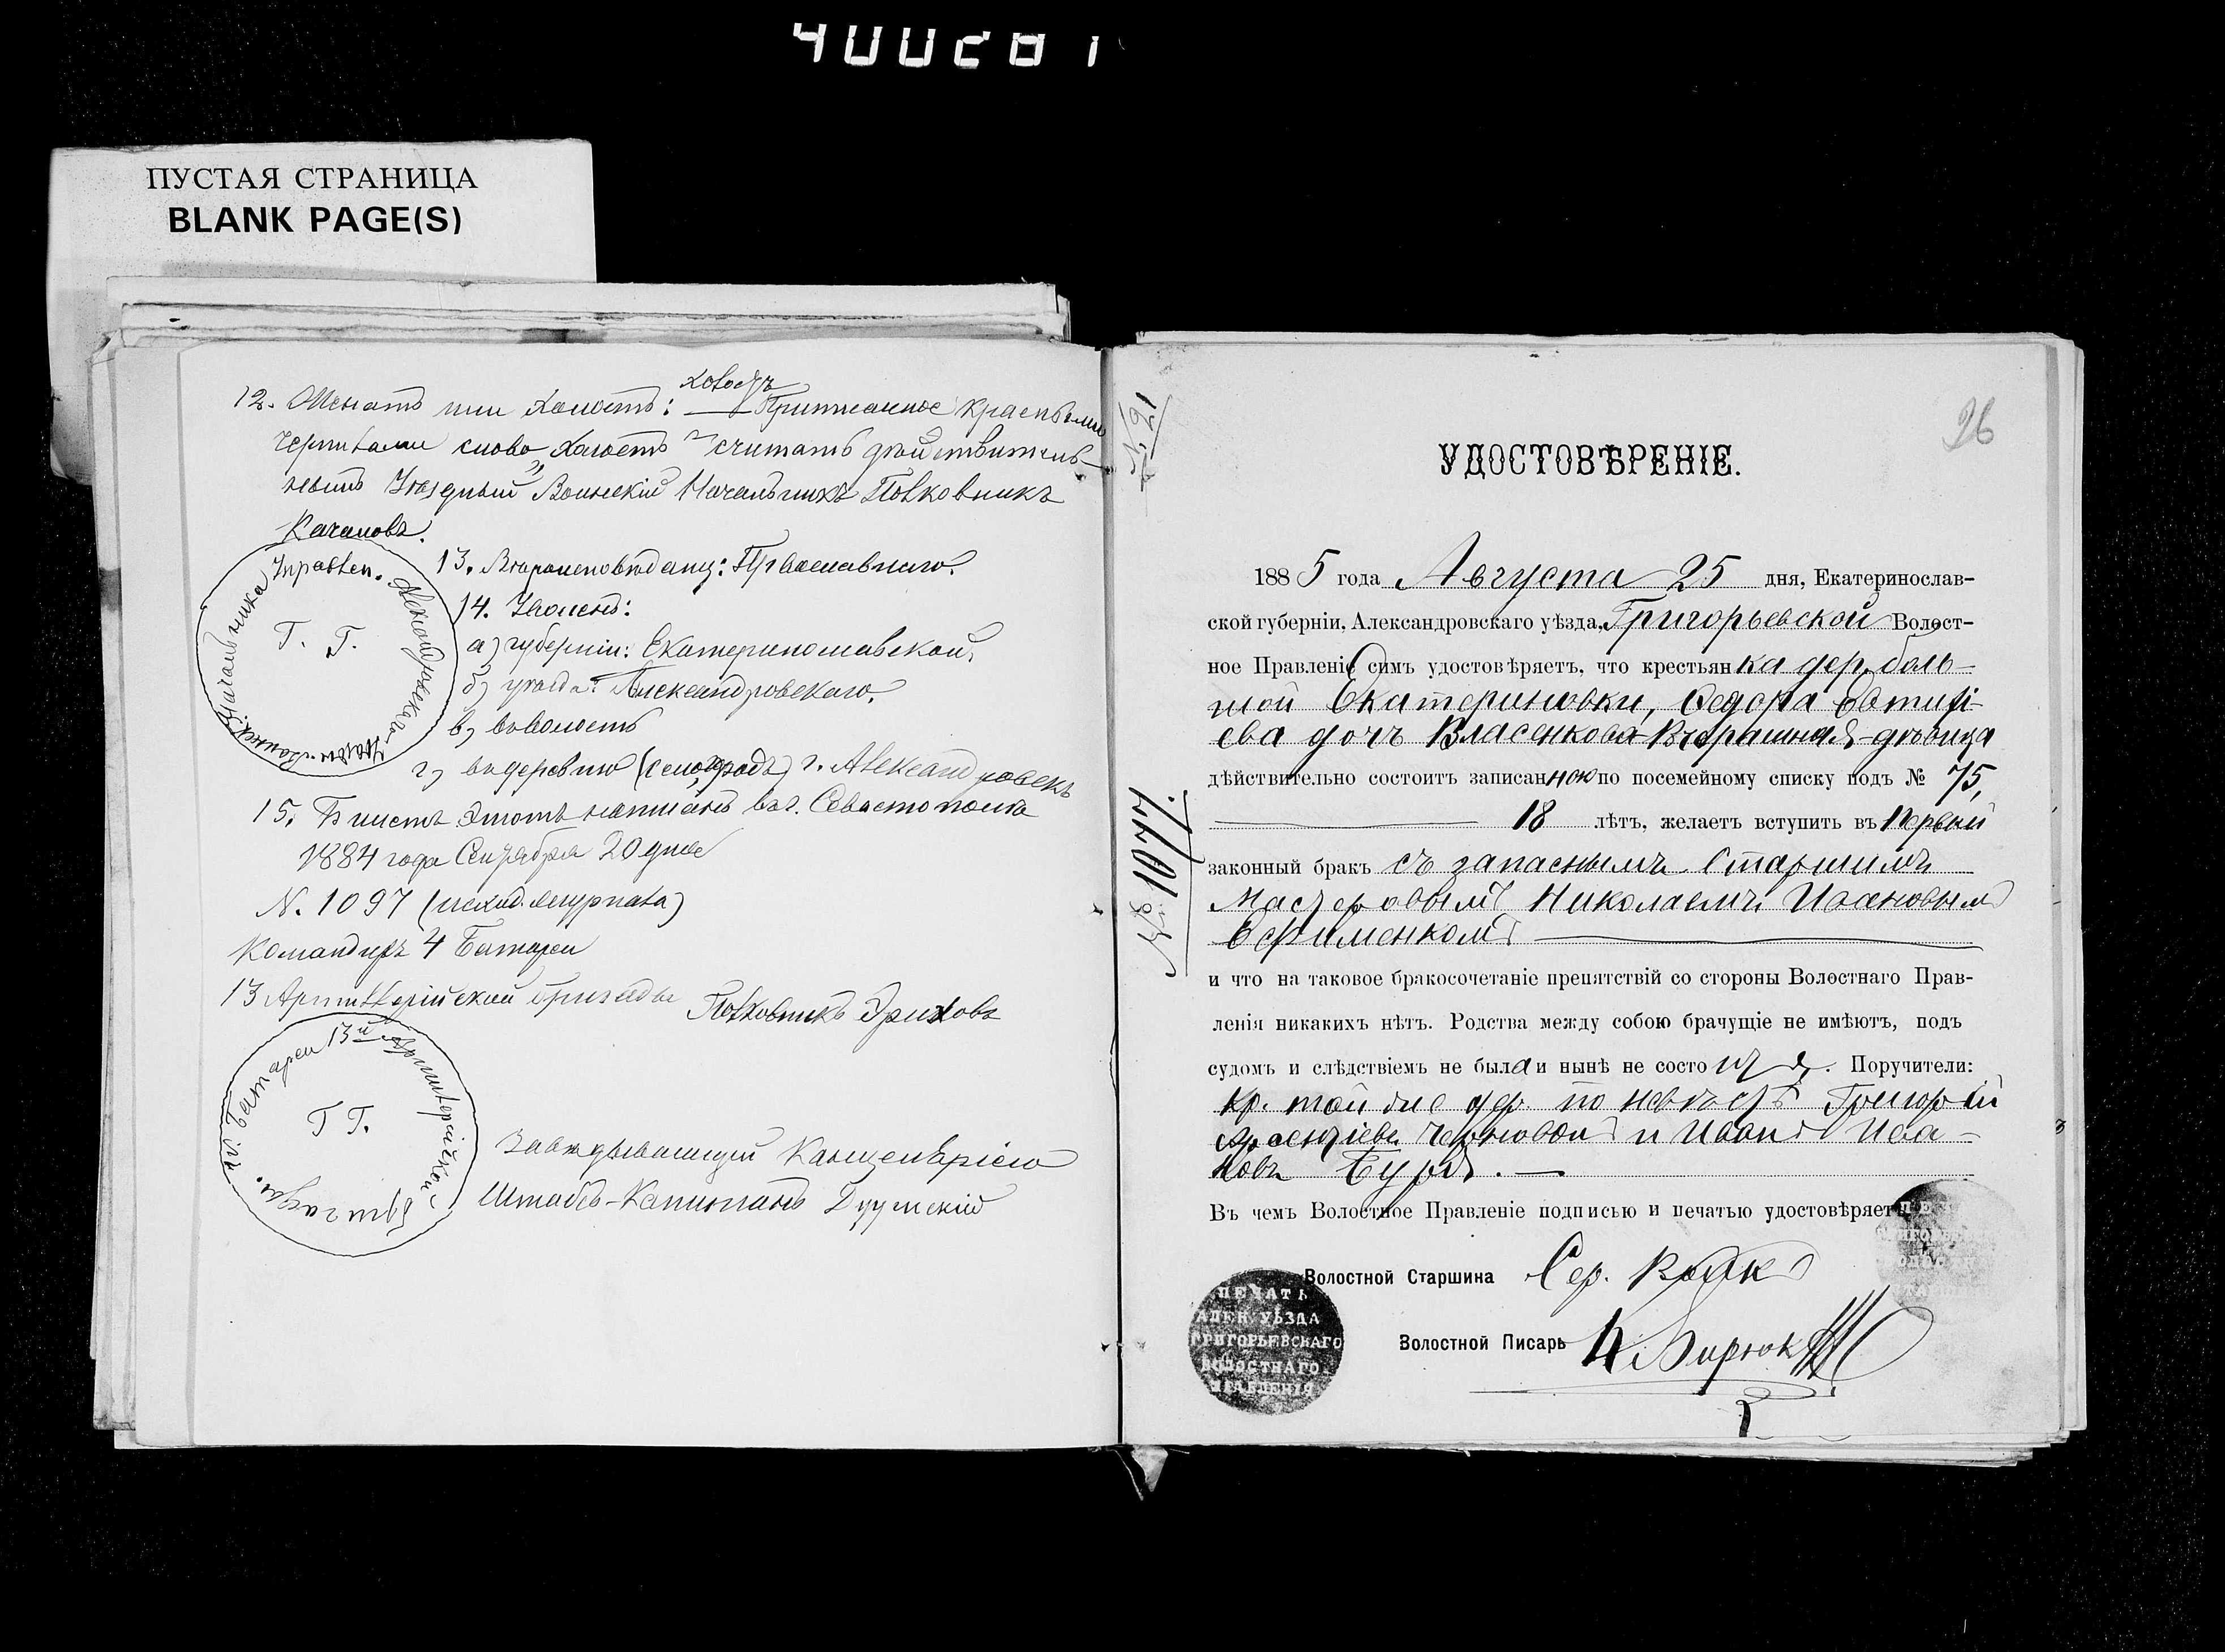 400281
ПУСТАЯ СТРАНИЦА
BLANK PAGE(S)
холостъ
12. Женатъ или холостъ: — Приписанное красными
чернилами слово „холостъ“ считать действитель-
нымъ Уѣздный Воинскій Начальникъ Полковникъ
Качаловъ.
13. Вѣроисповѣданія: Православнаго.
14. Уволенъ:
а) губерніи: Екатеринославской,
б) уѣзда: Александровскаго.
в) въ волость
г) въ деревню (село, городъ) г. Александровскъ
15. Билетъ этотъ написанъ въ г. Севастополѣ
1884 года Сентября 20 дня
N. 1097 (исход. журнала)
Командиръ 4 Батареи
13 Артиллерійской бригады Полковникъ
Управлен. Александровскаго Уѣздн. Воинск. Начальника
Г. Г.
Батареи 13й Артиллерійской бригады.
Г Г.
Завѣдывающій Канцеляріею
Штабсъ-Капитанъ
26
№ 21
№ 1077.
УДОСТОВѢРЕНІЕ.
1885 года Августа 25 дня, Екатеринослав-
ской губерніи, Александровскаго уѣзда, Григорьевской Волост-
ное Правленіе симъ удостовѣряетъ, что крестьянка дер. боль-
шой Екатериновки, Федора Евтифі-
ева дочь Власенкова-Вчерашная-дѣвица
дѣйствительно состоитъ записанною по посемейному списку подъ № 75,
18 лѣтъ, желаетъ вступить въ первый
законный бракъ съ запаснымъ Старшимъ
Мастеровымъ Николаемъ Ивановымъ
Ефименкомъ
и что на таковое бракосочетаніе препятствій со стороны Волостнаго Прав-
ленія никакихъ нѣтъ. Родства между собою брачущіе не имѣютъ, подъ
судомъ и слѣдствіемъ не была и нынѣ не состоитъ. Поручители:
кр. той же дер. по невѣстѣ Григорій
Арсентіевъ Черновол и Иванъ Ива-
новъ Буря.
Въ чемъ Волостное Правленіе подписью и печатью удостовѣряетъ
Волостной Старшина Сер.
Волостной Писарь
ПЕЧАТЬ
АЛЕК. УѢЗДА
ГРИГОРЬЕВСКАГО
ВОЛОСТНАГО
ПРАВЛЕНІЯ